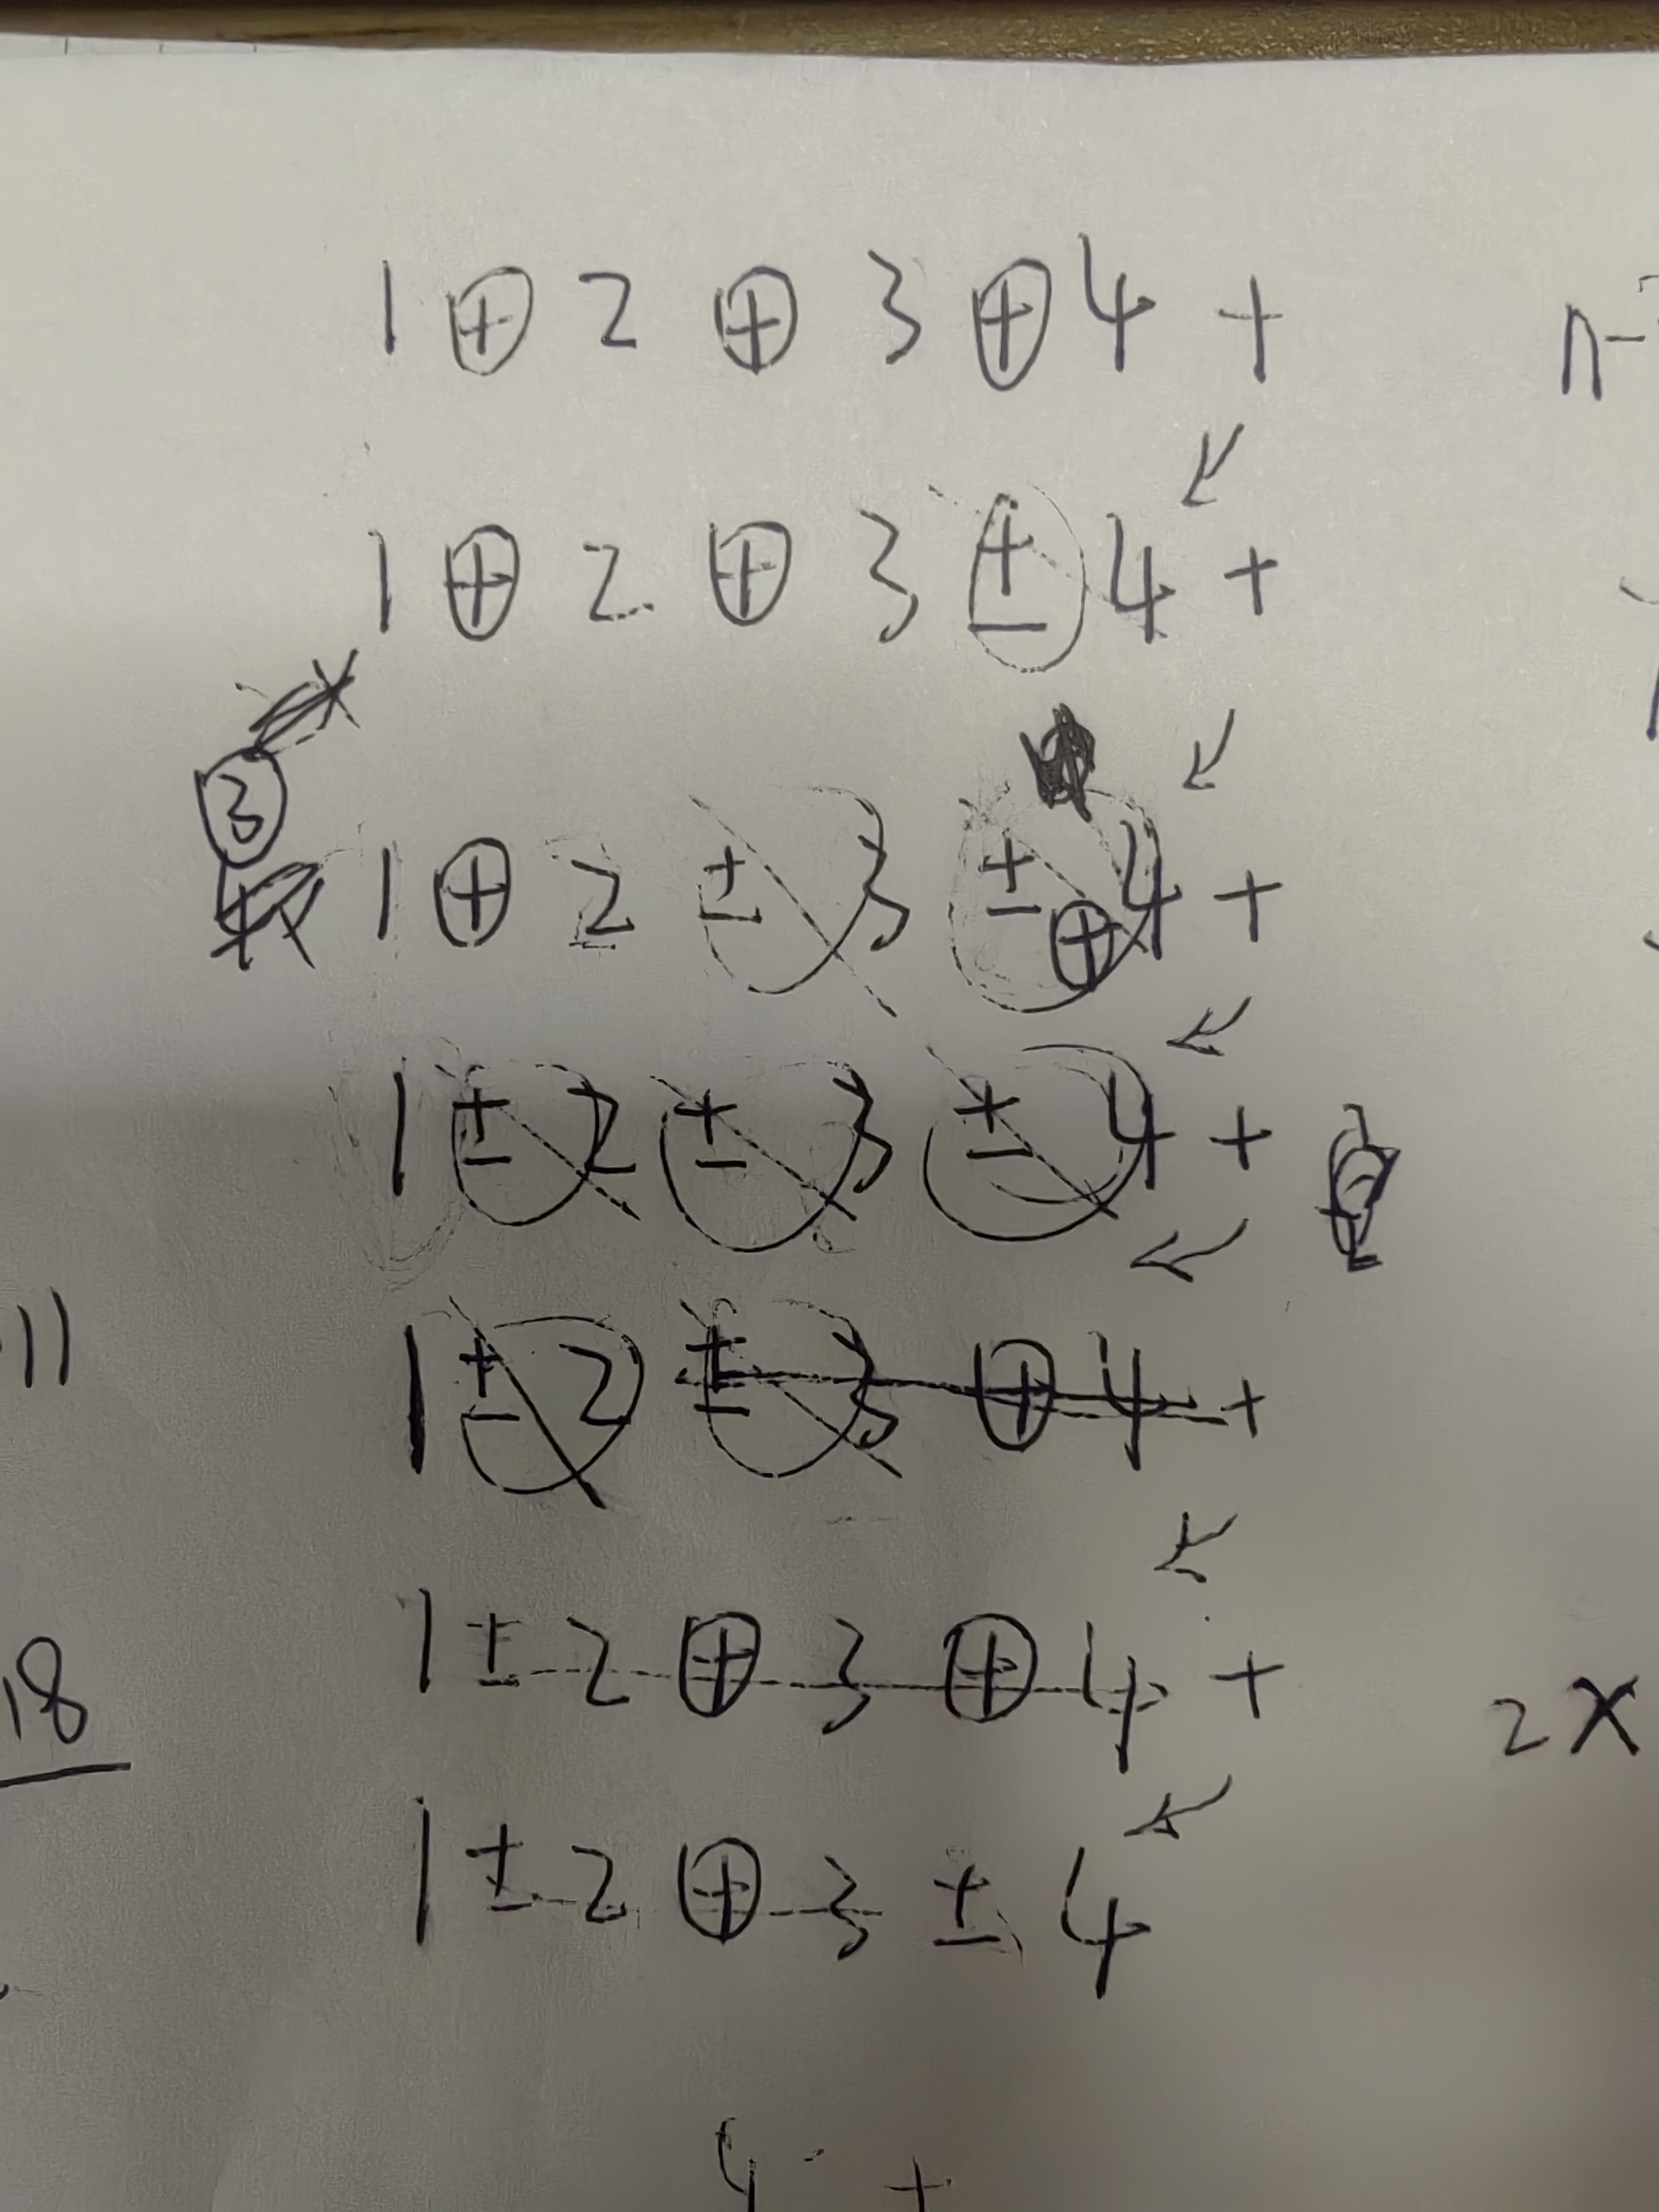 1 ⊕ 2 ⊕ 3 ⊕ 4 +
n-
1 ⊕ 2 ⊕ 3 ± 4 +
③
1 ⊕ 2 ± 3 ± ⊕ 4 +
1 ± 2 ± 3 ± 4 +
11
1 ± 2 ± 3 ⊕ 4 +
1 ± 2 ⊕ 3 ⊕ 4 +
18
2x
1 ± 2 ⊕ 3 ± 4
+